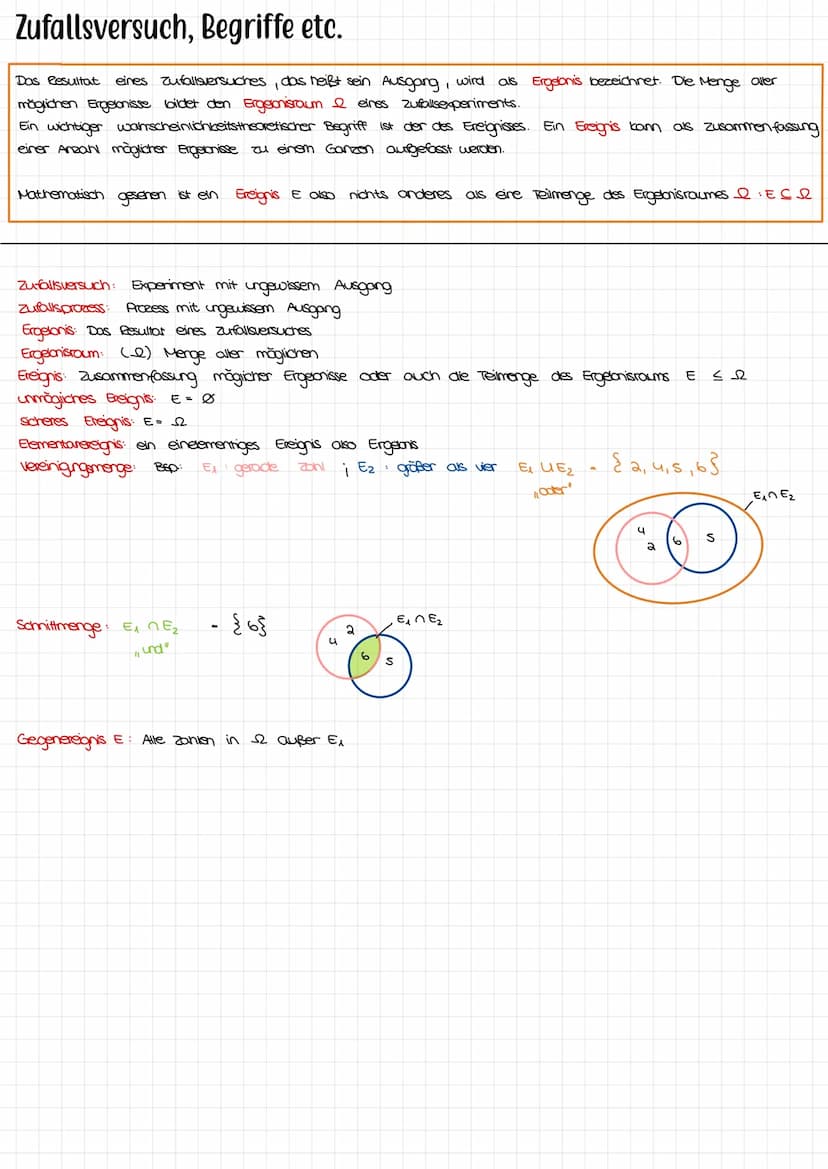 Zufallsversuch, Begriffe etc.
Das Resultat eines Zufallsversuches, das heißt sein Ausgang, wird als Ergebnis bezeichnet. Die Menge aller
möglichen Ergebnisse bildet den Ergebnisraum Ω eines Zufallsexperiments.
Ein wichtiger wahrscheinlichkeitstheoretischer Begriff ist der des Ereignisses. Ein Ereignis kann als Zusammenfassung
einer Anzahl möglicher Ergebnisse zu einem Ganzen aufgefasst werden.
Mathematisch gesehen ist ein Ereignis E also nichts anderes als eine Teilmenge des Ergebnisraumes Ω : E ⊆ Ω
Zufallsversuch: Experiment mit ungewissem Ausgang
Zufallsprozess: Prozess mit ungewissem Ausgang
Ergebnis: Das Resultat eines Zufallsversuches
Ergebnisraum: (Ω) Menge aller möglichen
Ereignis: Zusammenfassung möglicher Ergebnisse oder auch die Teilmenge des Ergebnisraums E ≤ Ω
unmögliches Ereignis: E = Ø
sicheres Ereignis: E = Ω
Elementarereignis: ein einelementiges Ereignis also Ergebnis
Vereinigungsmenge: Bsp: E₁ : gerade Zahl ; E₂ : größer als vier E₁ ∪ E₂ = {2,4,5,6}
„oder"
E₁ ∩ E₂
4
2
6
5
Schnittmenge: E₁ ∩ E₂ = {6}
„und"
E₁ ∩ E₂
4
2
6
5
Gegenereignis E: Alle Zahlen in Ω außer E₁